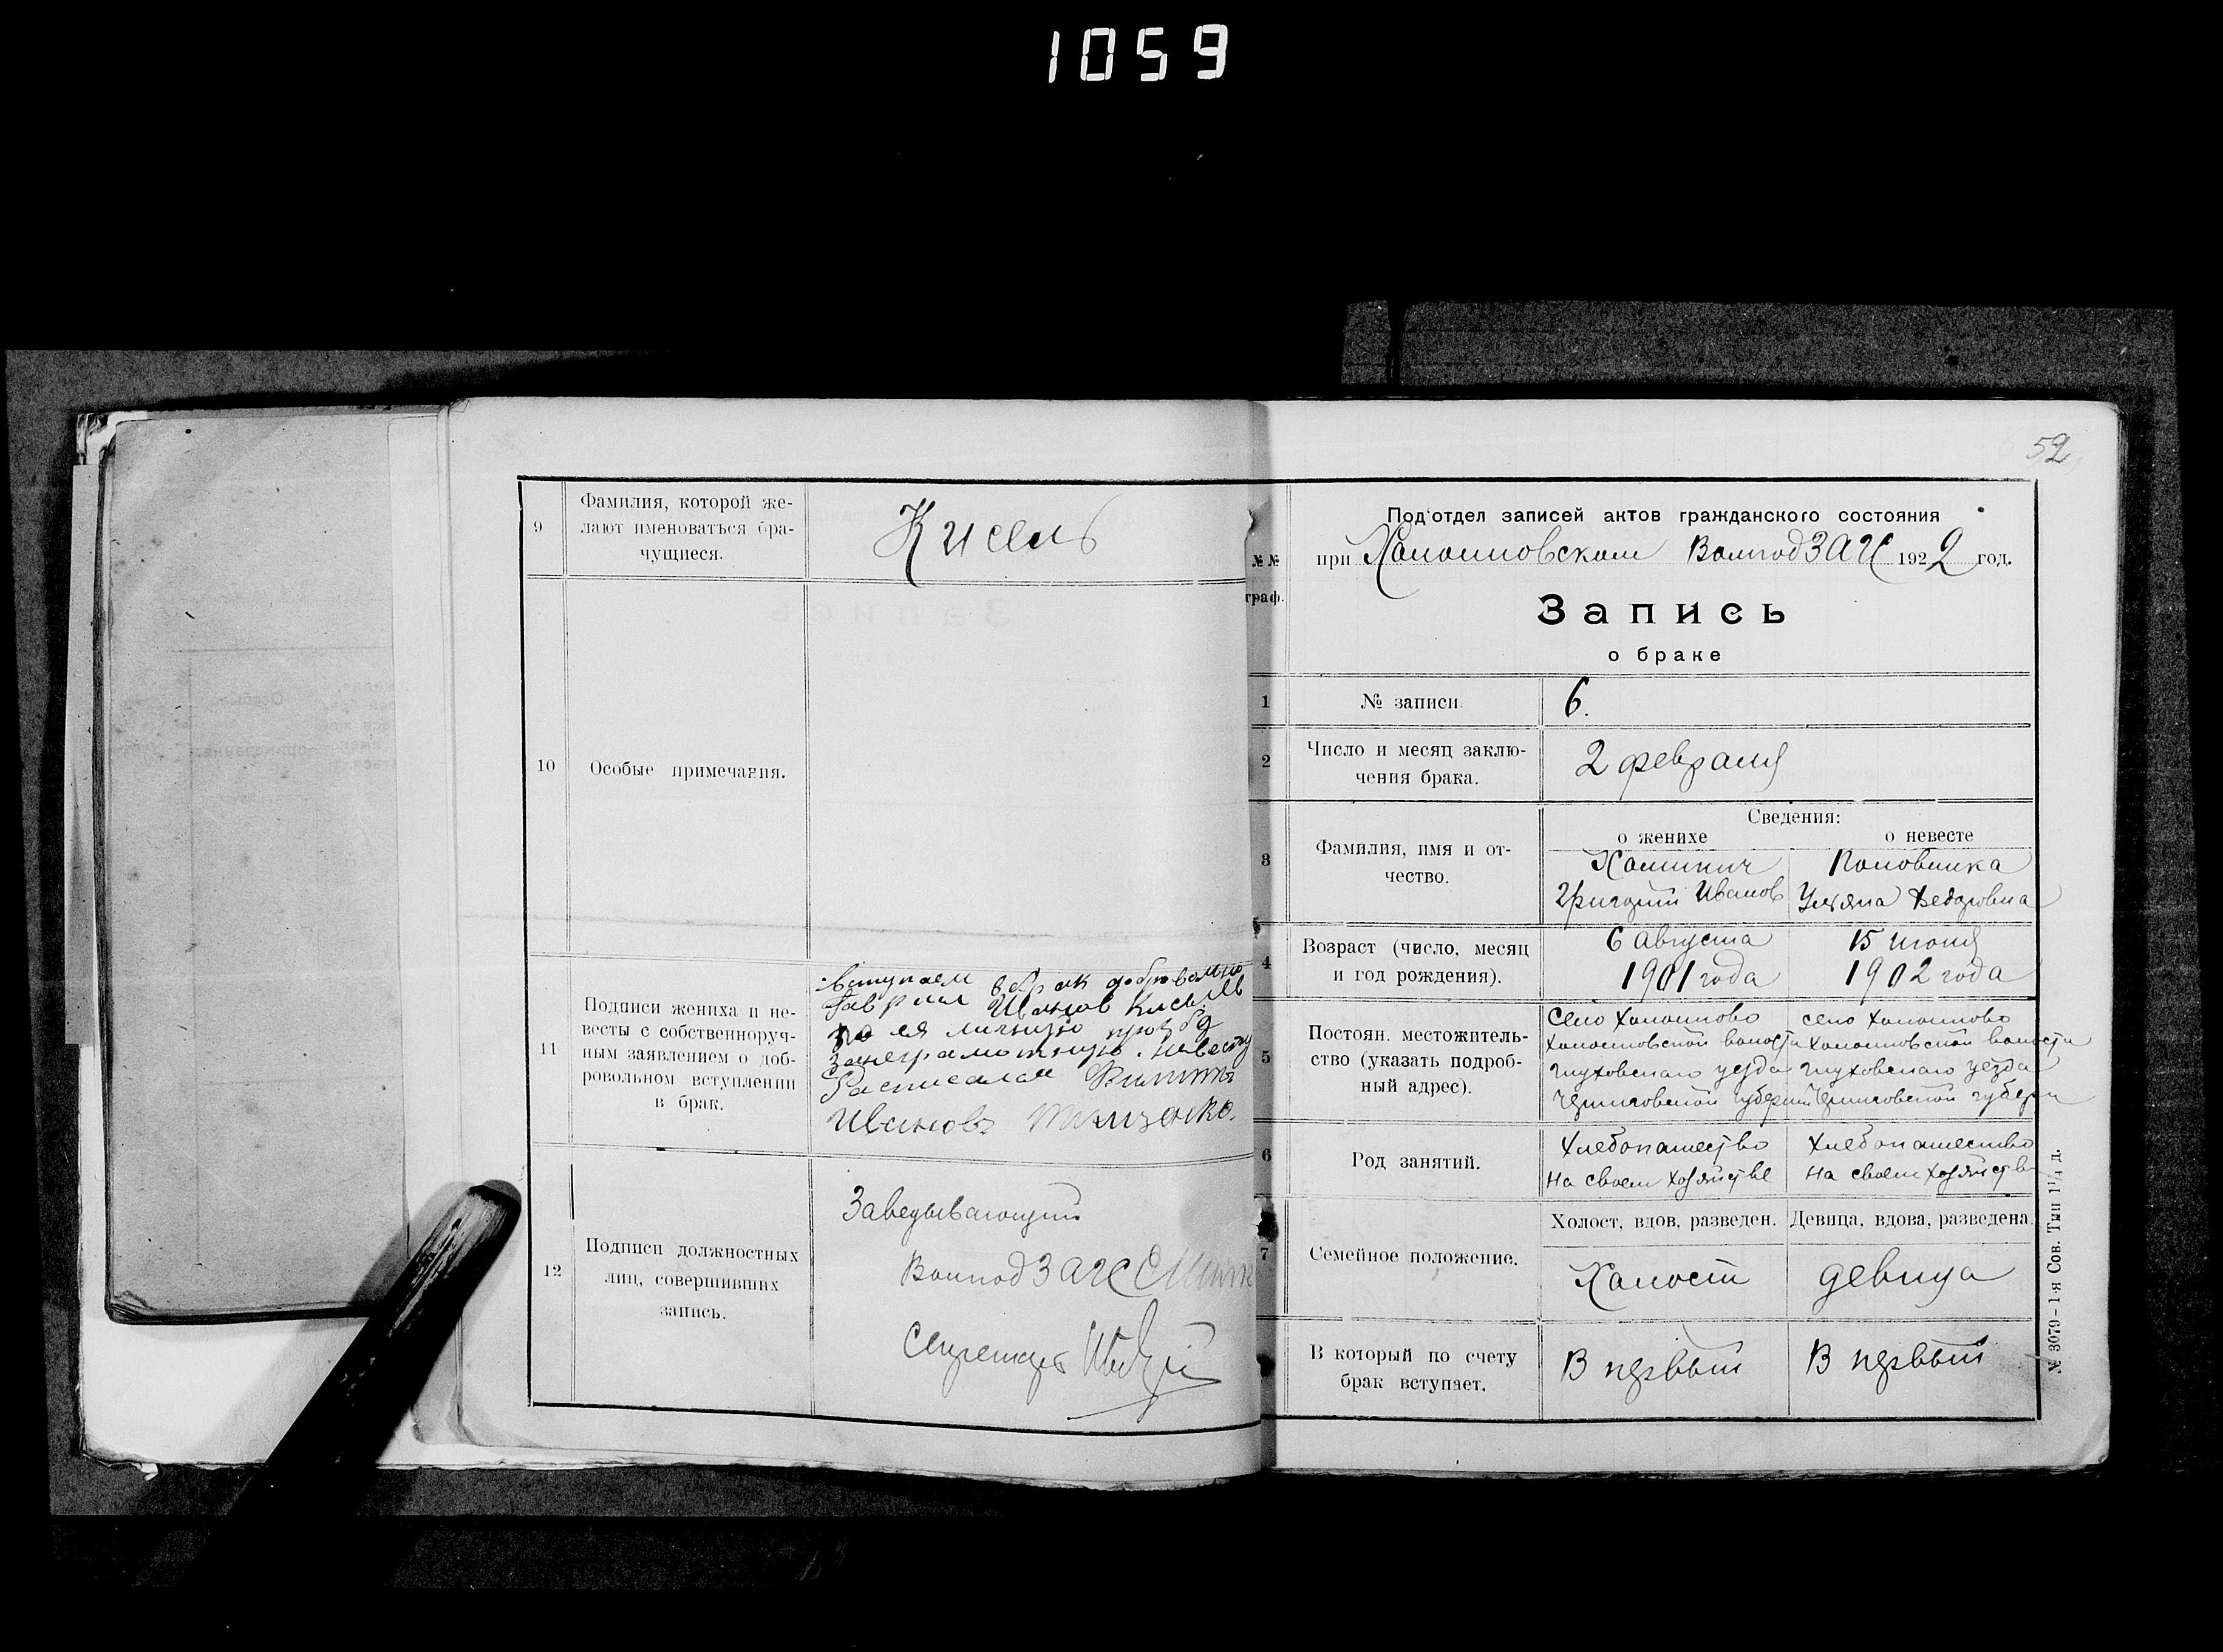 1059
52
9
Фамилия, которой же-
лают именоваться бра-
чущиеся.
Кисель
10
Особые примечания.
11
Подписи жениха и не-
весты с собственноруч-
ным заявлением о доб-
ровольном вступлении
в брак.
Вступаем в брак добровольно
Гаврил Иванов Кисель
по ея личную прозбу
За неграмотную невесту
Расписалах Филипп
Иванов Тимченко.
12
Подписи должностных
лиц, совершивших
запись.
Заведывающий
ВолподЗАГС
Секретарь
Под'отдел записей актов гражданского состояния
при Холопковском ВолподЗАГС 1922 год.
№№
граф.
Запись
о браке
1
№ записи.
6.
2
Число и месяц заклю-
чения брака.
2 февраля
Сведения:
о женихе
о невесте
3
Фамилия, имя и от-
чество.
Калинич
Григорий Иванов
Половинка
Ульяна Федоровна
4
Возраст (число, месяц
и год рождения).
6 августа
1901 года
15 июня
1902 года
5
Постоян. местожитель-
ство (указать подроб-
ный адрес).
Село Холопково
Холопковской волости
Глуховскаго уезда
Черниговской губернии
село Холопково
Холопковской волости
Глуховскаго уезда
Черниговской губерн
6
Род занятий.
Хлебопашество
На своем хозяйстве
Хлебопашество
на своем хозяйстве
7
Семейное положение.
Холост, вдов, разведен.
Девица, вдова, разведена.
Халост
девица
В который по счету
брак вступает.
В первый
В первый
№ 3079–1-я Сов. Тип 1¹/₄ д.